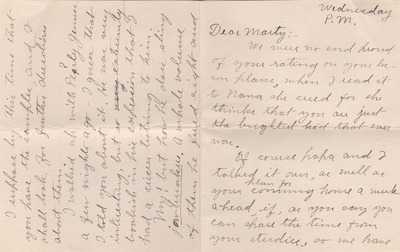 Wednesday
P.M.
Dear Marty:-
We were no end proud
of your rating on your les-
son plans, when I read it
to Nana she cried for she
thinks that you are just
the brightest kid that ever
was.
Of course papa and I
talked it over, as well as
your plan for coming home a week
ahead if, as you say you
can spare the time from
your studies, as we have
I suppose by this time that
you have the samples, and I
shall look for further directions
about them.
I walked up with
a few nights ago - I guess that
I told you about it. He was very
interesting, but so extremely
bookish in his expression that I
had a circus listening to him.
My! but how he does sling
a whole volume
of them he fired right and